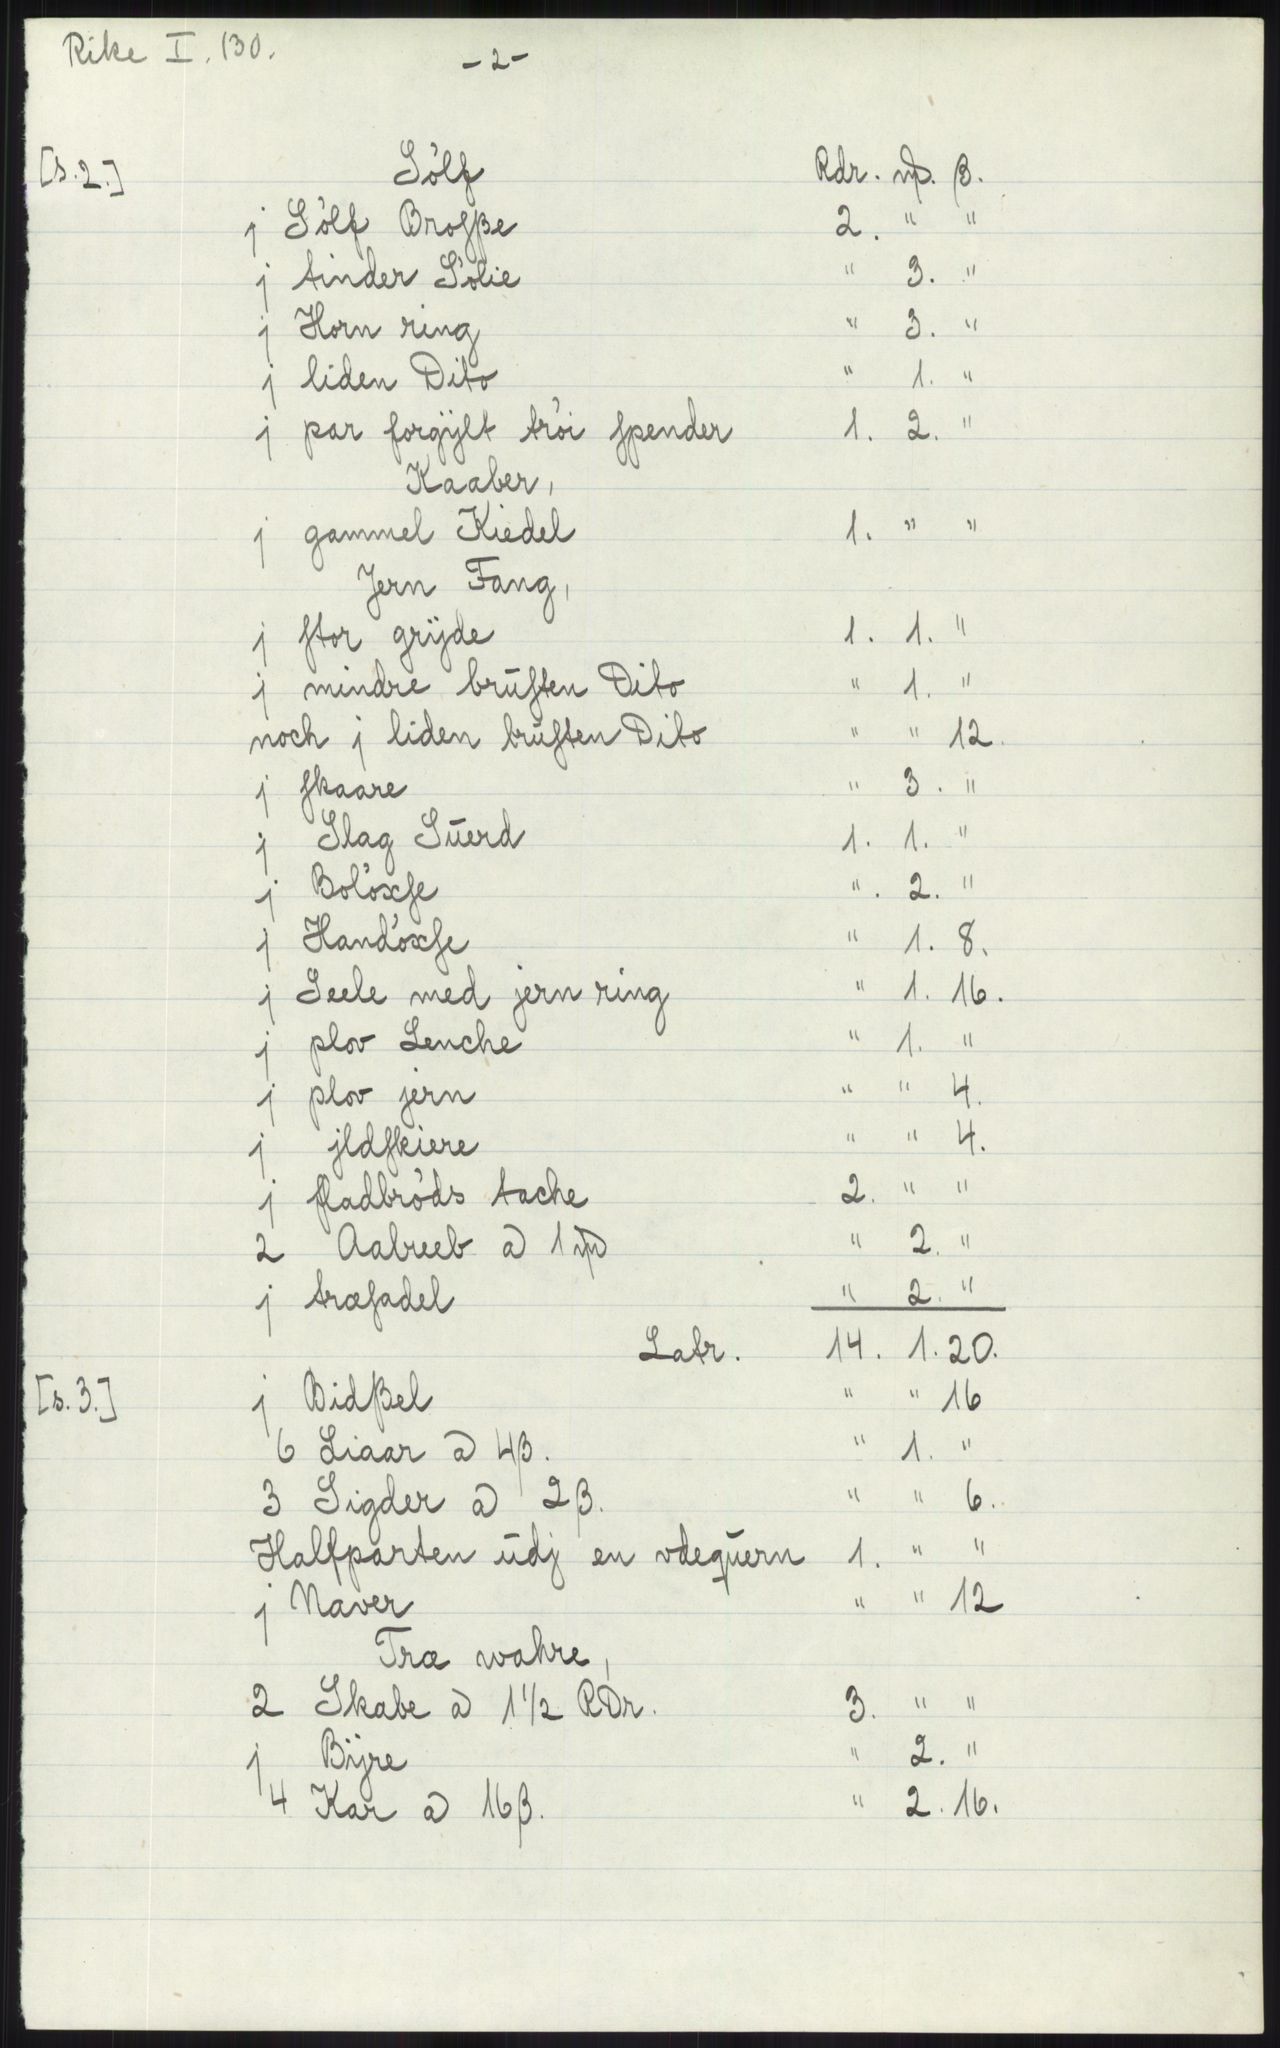 Rike I. 130.
-2-
[s.2.] Sölf Rdr. mþ. β.
j Sölf Brosβe 2. " "
j tinder Sölie " 3. "
j Horn ring " 3. "
j liden Dito " 1. "
j par forgÿlt tröi ſpender 1. 2. "
Kaaber,
j gammel Kiedel 1. " "
Jern Fang,
j ſtor grÿde 1. 1. "
j mindre brŭſten Dito " 1. "
noch j liden brŭſten Dito " " 12.
j ſkaare " 3. "
j Slag Sŭerd 1. 1. "
j Bolöxſe ". 2. "
j Handöxſe " 1. 8.
j Seele med jern ring " 1. 16.
j plov Lenche " 1. "
j plov jern " " 4.
j jldſkiere " " 4.
j fladbröds tache 2. " "
2 Aabreeb a 1 mþ " 2. "
j træſadel " 2. "
Latr. 14. 1. 20.
[s.3.] j Bidβel " " 16
6 Liaar a 4β. " 1. "
3 Sigder a 2β. " " 6.
Halfparten ŭdj en vdeqŭern 1. " "
j Naver " " 12
Træ wahre,
2 Skabe a 1 1/2 RDr. 3. " "
j Bÿre " 2. "
4 Kar a 16β. " 2. 16.